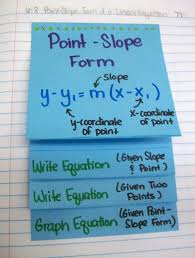 4-8: Point-Slope Form of a Linear Equation 71
Point-Slope
Form
Slope
y-y₁=m(x-x₁)
y-coordinate
of point
x-coordinate
of point
Write Equation (Given Slope
& Point)
Write Equation (Given Two
Points)
Graph Equation (Given Point-
Slope Form)